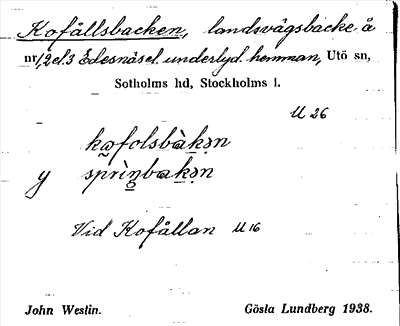 Kofållsbacken, landsvägsbacke å
nr 1, 2 el. 3 Edesnäs el. underlyd. hemman, Utö sn,
Sotholms hd, Stockholms l.
U 26
kəfolsbàkən
y sprìŋbakən
Vid Kofållan U 16
John Westin. Gösta Lundberg 1938.